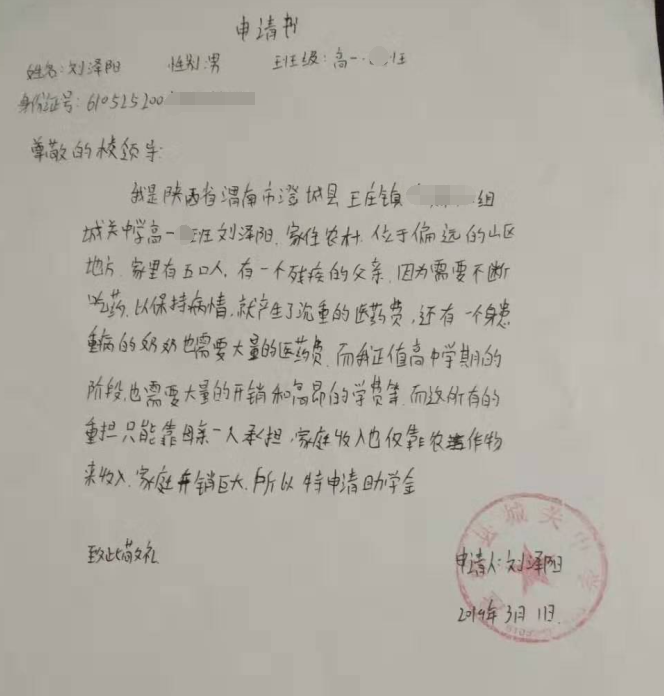 申请书
姓名:刘泽阳 性别:男 班级:高一·班
身份证号:610525200
尊敬的校领导:
我是陕西省渭南市澄城县王庄镇组
城关中学高一班刘泽阳.家住农村.位于偏远的山区
地方.家里有五口人,有一个残疾的父亲.因为需要不断
吃药.以保持病情,就产生了沉重的医药费,还有一个身患
重病的奶奶也需要大量的医药费.而我正值高中学期的
阶段,也需要大量的开销和高昂的学费等.而这所有的
重担只能靠母亲一人承担.家庭收入也仅靠农作物
来收入.家庭开销巨大.所以特申请助学金
致此敬礼
申请人:刘泽阳
2019年3月1日
县城关中学